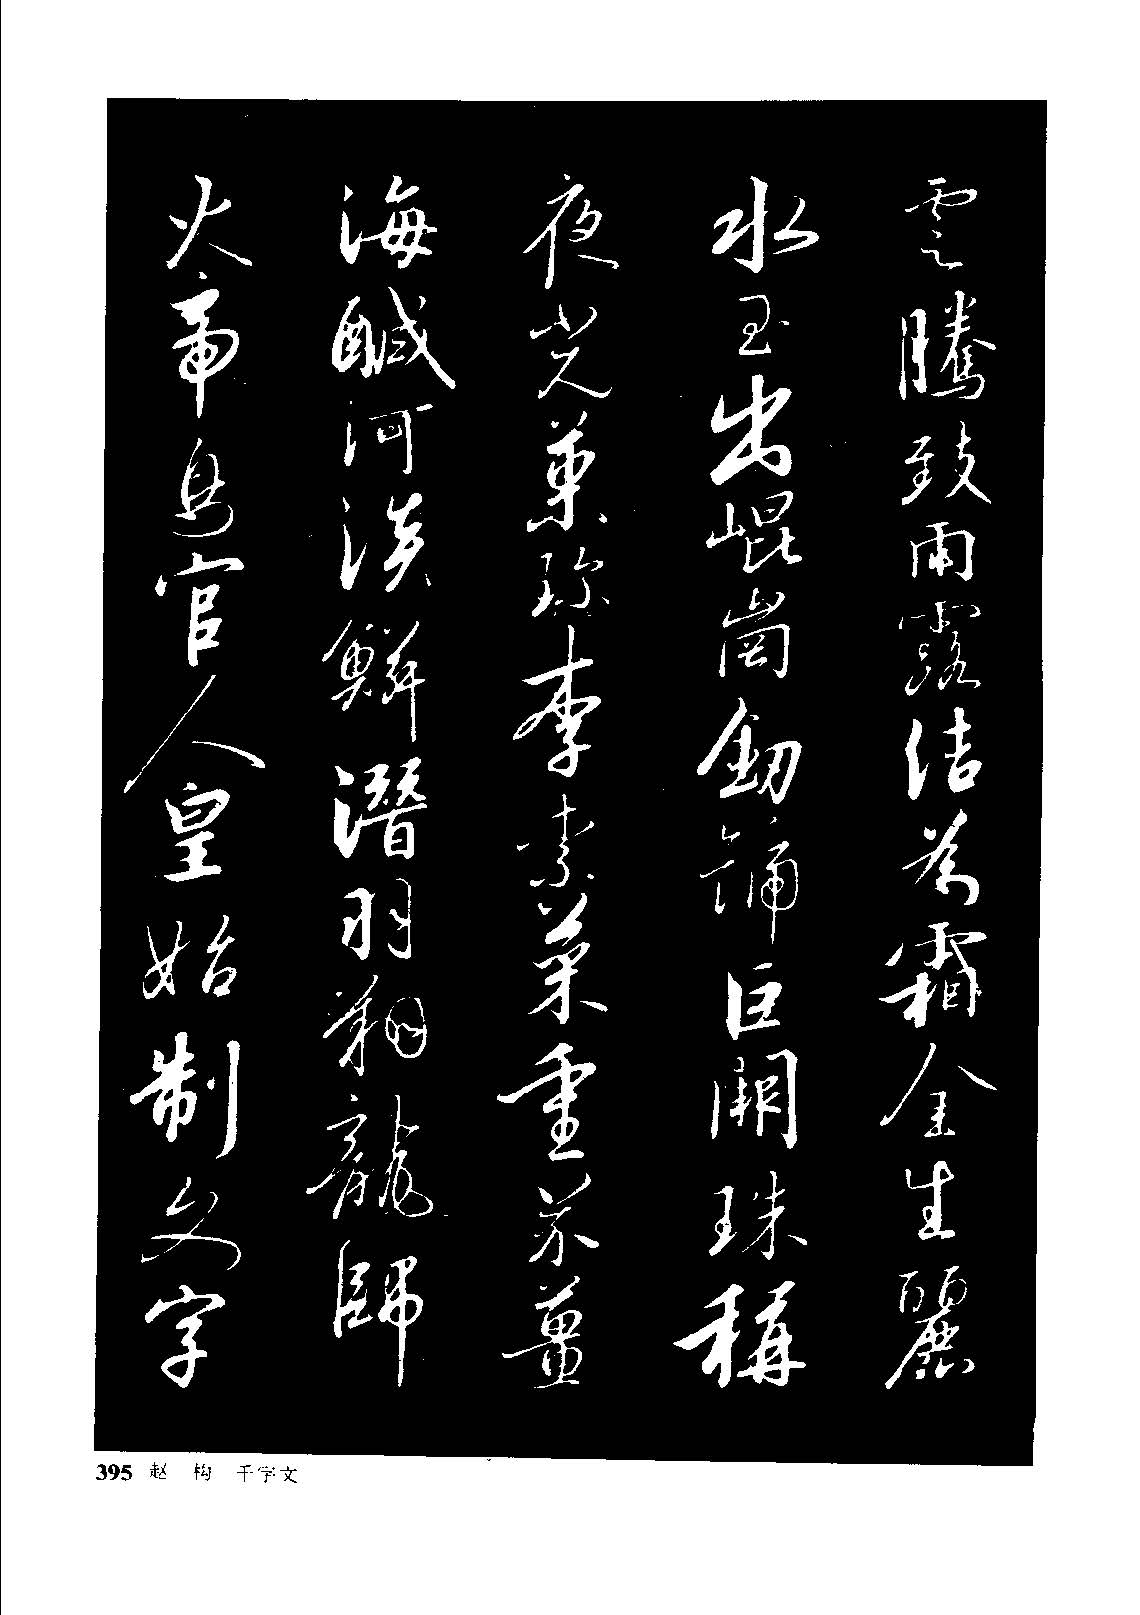 雲騰致雨露結為霜金生麗
水玉出崐崗釰號巨闕珠稱
夜光菓珍李柰菜重芥薑
海醎河淡鱗潛羽翔龍師
火帝鳥官人皇始制文字
395 赵 构 千字文